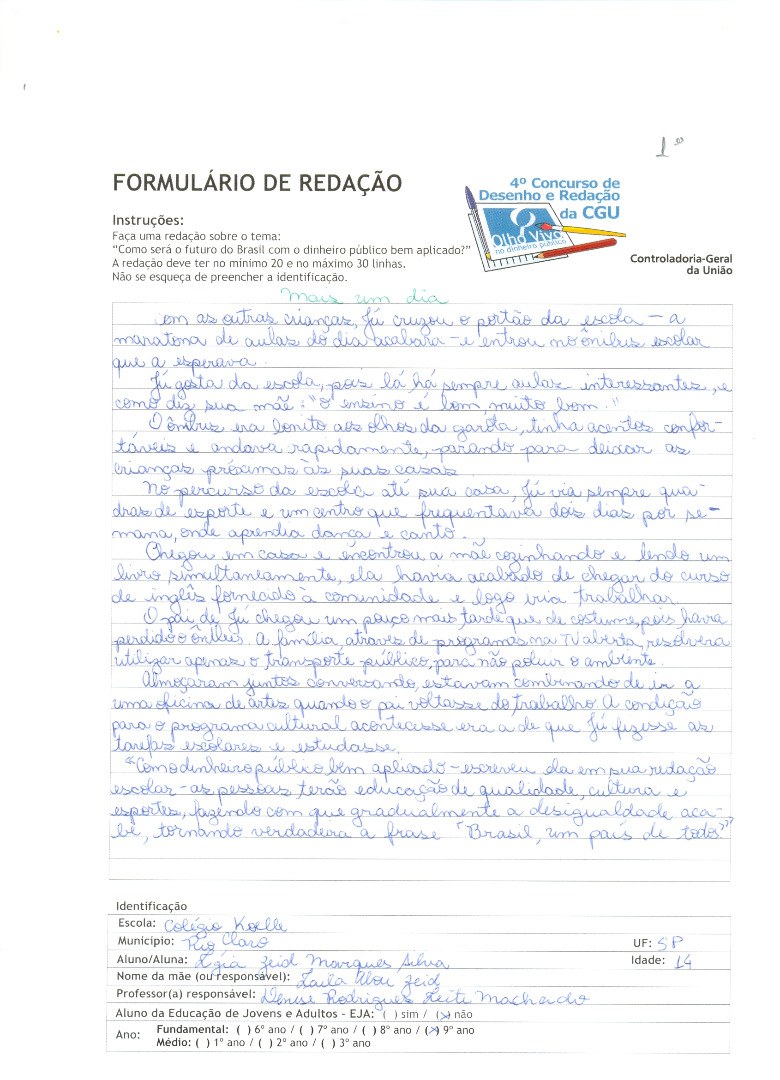 1º
FORMULÁRIO DE REDAÇÃO
4º Concurso de
Desenho e Redação
da CGU
Olho Vivo
no dinheiro público
Controladoria-Geral
da União
Instruções:
Faça uma redação sobre o tema:
"Como será o futuro do Brasil com o dinheiro público bem aplicado?"
A redação deve ter no mínimo 20 e no máximo 30 linhas.
Não se esqueça de preencher a identificação.
Mais um dia
om as outras crianças, Jú cruzou o portão da escola – a
maratona de aulas do dia acabara – e entrou no ônibus escolar
que a esperava.
Jú gosta da escola, pois lá há sempre aulas interessantes, e
como diz sua mãe: "o ensino é bom, muito bom."
O ônibus era bonito aos olhos da garota, tinha acentos confor-
táveis e andava rapidamente, parando para deixar as
crianças próximas às suas casas.
No percurso da escola até sua casa, Jú via sempre qua-
dras de esporte e um centro que frequentava dois dias por se-
mana, onde aprendia dança e canto.
Chegou em casa e encontrou a mãe cozinhando e lendo um
livro simultaneamente, ela havia acabado de chegar do curso
de inglês fornecido à comunidade e logo iria trabalhar.
O pai de Jú chegou um pouco mais tarde que de costume, pois havia
perdido o ônibus. A família através de programas na TV aberta, resolvera
utilizar apenas o transporte público, para não poluir o ambiente.
Almoçaram juntos conversando, estavam combinando de ir a
uma oficina de artes quando o pai voltasse do trabalho. A condição
para o programa cultural acontecesse era a de que Jú fizesse as
tarefas escolares e estudasse.
"Com o dinheiro público bem aplicado – escreveu ela em sua redação
escolar – as pessoas terão educação de qualidade, cultura e
esportes, fazendo com que gradualmente a desigualdade aca-
be, tornando verdadeira a frase "Brasil, um país de todos""
Identificação
Escola: Colégio Koelle
Município: Rio Claro UF: SP
Aluno/Aluna: Lígia Zeid Marques Silva Idade: 14
Nome da mãe (ou responsável): Laila Abou Zeid
Professor(a) responsável: Denise Rodrigues Leite Machado
Aluno da Educação de Jovens e Adultos - EJA: ( ) sim / (x) não
Ano: Fundamental: ( ) 6º ano / ( ) 7º ano / ( ) 8º ano / (x) 9º ano
Médio: ( ) 1º ano / ( ) 2º ano / ( ) 3º ano